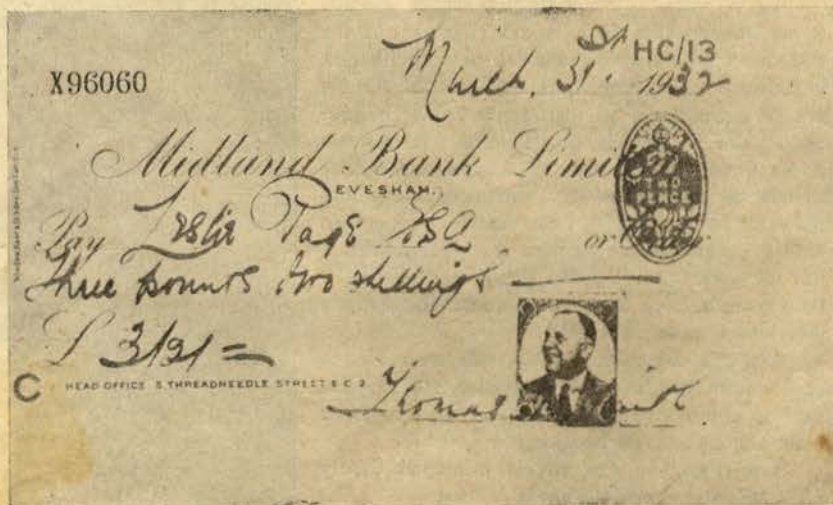 HC/13
X96060 March. 31st 1932
Midland Bank Limited
EVESHAM.
Pay Leslie Page ESQ or Order
three pounds two shillings
£ 3/2/=
C HEAD OFFICE 5, THREADNEEDLE STREET E C 2
Thomas